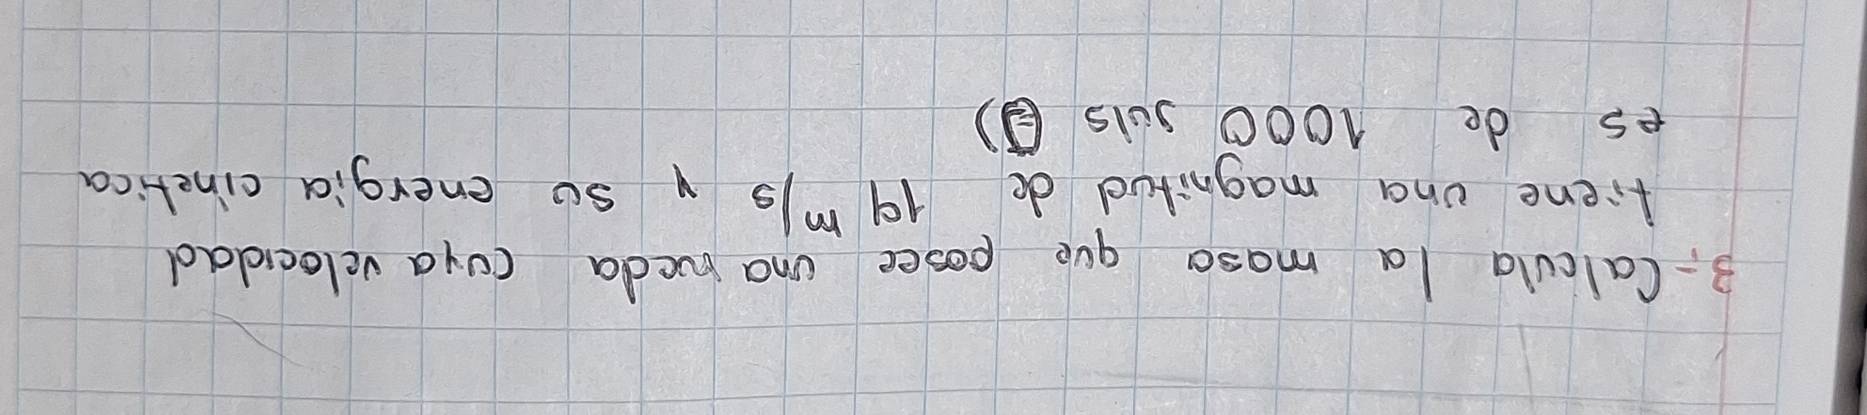 3.- Calcula la masa que posee una rueda cuya velocidad
tiene una magnitud de 19 m/s y su energia cinetica
es de 1000 Juls (J)